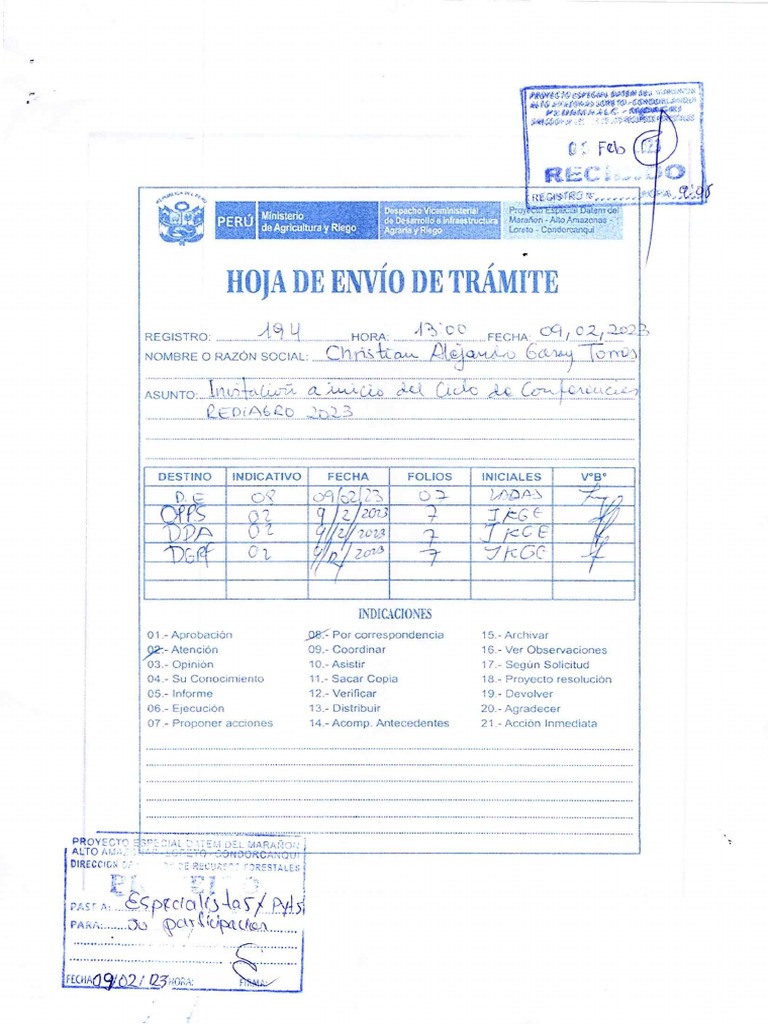 PROYECTO ESPECIAL DATEM DEL MARAÑON
ALTO AMAZONAS LORETO - CONDORCANQUI
Feb
RECIBIDO
REGISTRO N° HORA
REPÚBLICA DEL PERÚ
PERÚ
Ministerio
de Agricultura y Riego
Despacho Viceministerial
de Desarrollo e Infraestructura
Agraria y Riego
Proyecto Especial Datem del
Marañon - Alto Amazonas -
Loreto - Condorcanqui
HOJA DE ENVÍO DE TRÁMITE
REGISTRO: 194 HORA: 13:00 FECHA: 09,02,2023
NOMBRE O RAZÓN SOCIAL: Christian Alejandro Garay Torres
ASUNTO: Invitación a inicio del Ciclo de Conferencias
REDIAGRO 2023
DESTINO INDICATIVO FECHA FOLIOS INICIALES V°B°
D.E 08 09/02/23 07
OPPS 02 9/2/2023 7 JKGE
DDA 02 9/2/2023 7 JKGE
02 9/2/2023 7 JKGE
INDICACIONES
01.- Aprobación 08.- Por correspondencia 15.- Archivar
02.- Atención 09.- Coordinar 16.- Ver Observaciones
03.- Opinión 10.- Asistir 17.- Según Solicitud
04.- Su Conocimiento 11.- Sacar Copia 18.- Proyecto resolución
05.- Informe 12.- Verificar 19.- Devolver
06.- Ejecución 13.- Distribuir 20.- Agradecer
07.- Proponer acciones 14.- Acomp. Antecedentes 21.- Acción Inmediata
PROYECTO ESPECIAL DATEM DEL MARAÑON
ALTO AMAZONAS - LORETO - CONDORCANQUI
DIRECCION DE RECURSOS FORESTALES
PROVEIDO
PASE A: Especialistas
PARA: su participacion
FECHA 09/02/23 HORA: FIRMA: